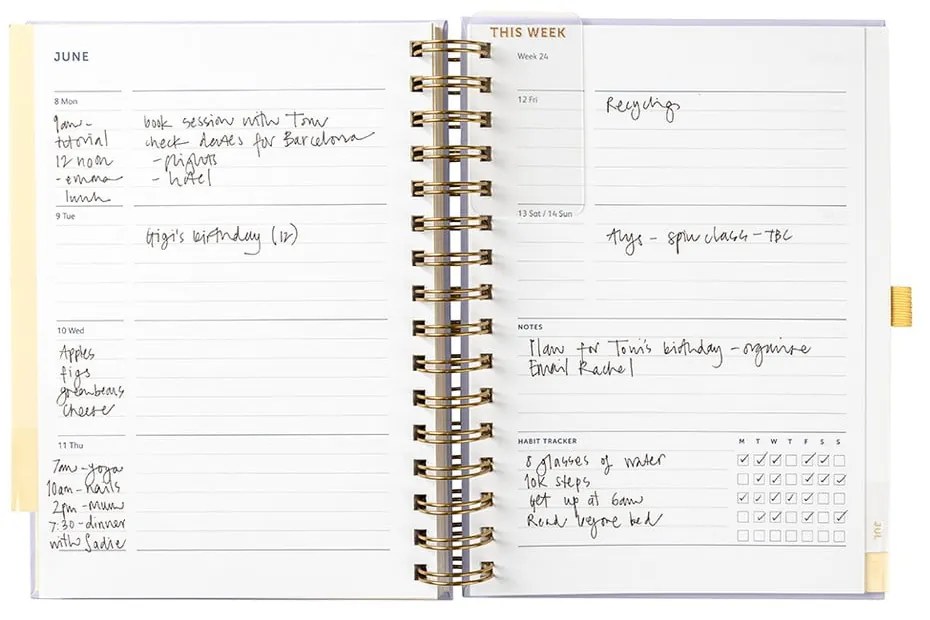 JUNE
8 Mon
9am-
tutorial
12 noon
- emma
lunch
book session with Tom
check dates for Barcelona
- flights
- hotel
9 Tue
Gigi's birthday (12)
10 Wed
Apples
figs
greenbeans
cheese
11 Thu
7am-yoga
10am-nails
2pm-mum
7:30-dinner
with Sadie
THIS WEEK
Week 24
12 Fri
Recycling
13 Sat / 14 Sun
Alys - spin class - TBC
NOTES
Plan for Tom's birthday - organise
Email Rachel
HABIT TRACKER M T W T F S S
8 glasses of water
10K steps
get up at 6am
Read before bed
JUL